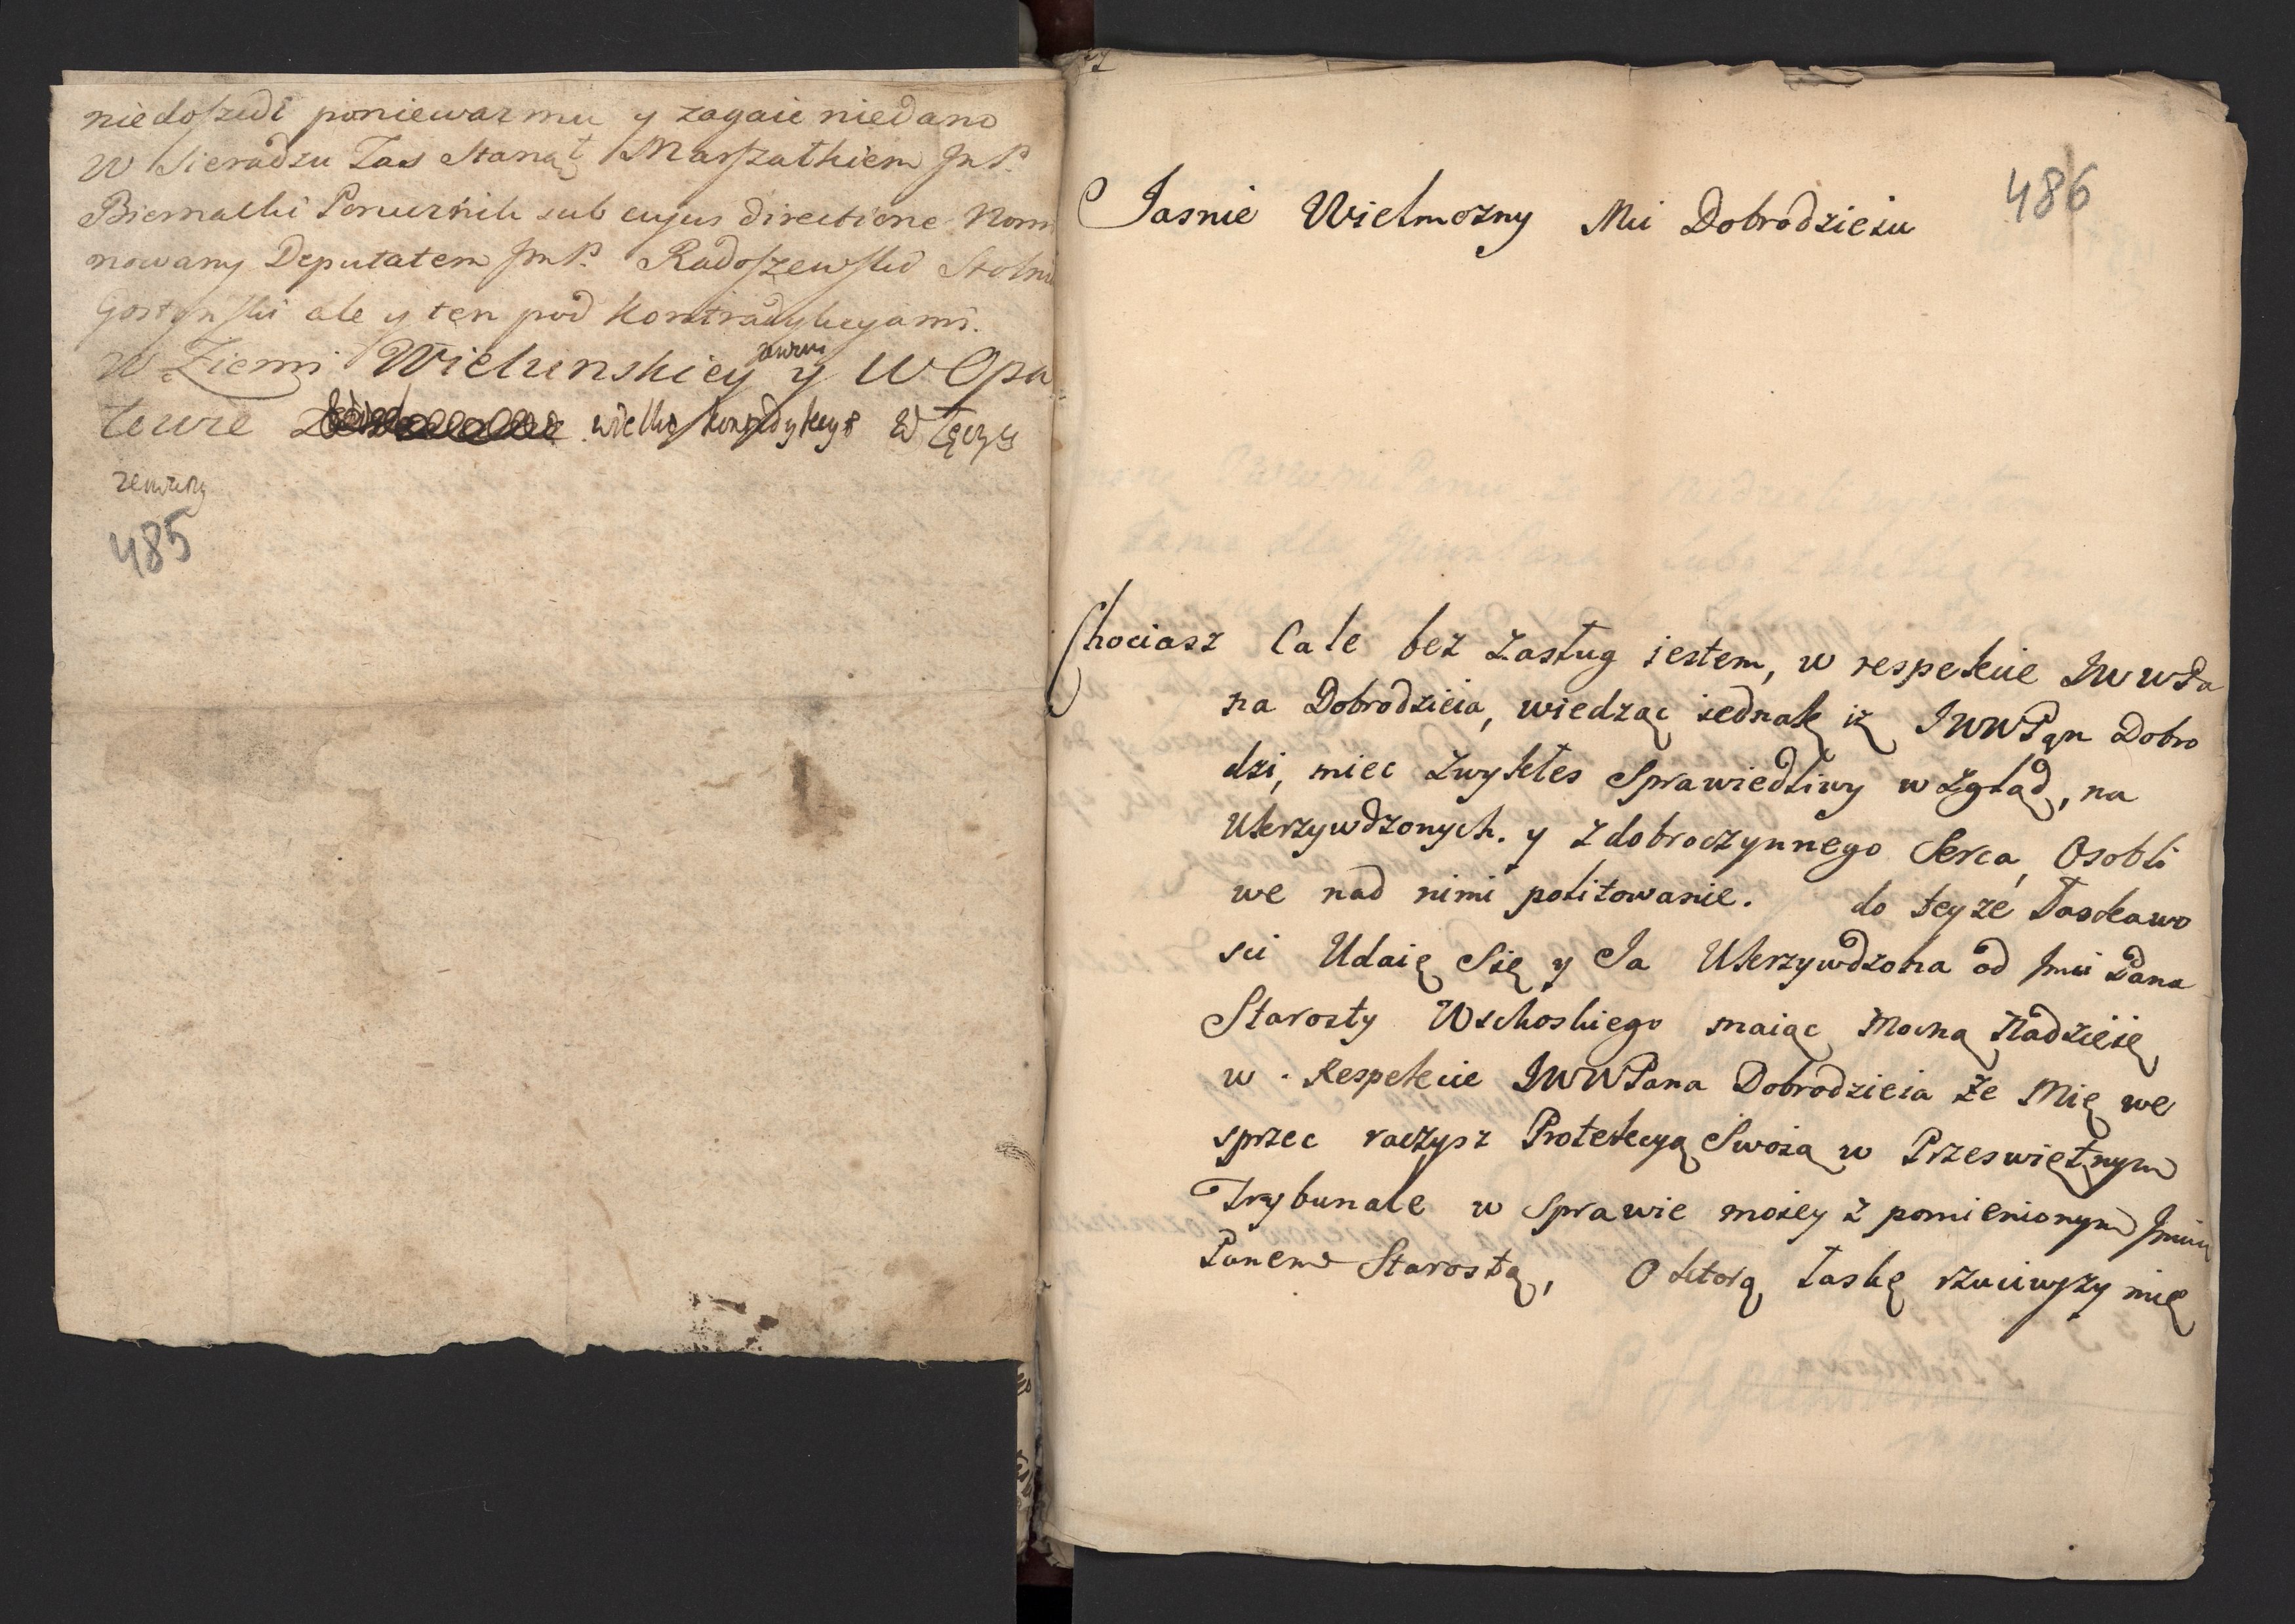 niedoszedł poniewaz mu y zagaic niedano
W Sieradzu Zas stanął Marszałkiem Jm P.
Biernacki Porucznik sub cujus directione Nomi
nowany Deputatem Jm P. Radoszewski Stolni
Gostynski ale y ten pod kontradykcyami.
W Ziemi Wielunskiey y W Opa
towie wielkie kontradykcye W Łęczy
485
486
Jasnie Wielmozny Mci Dobrodzieiu
Chociasz Cale bez zasług jestem, w respekcie JWWPa
na Dobrodzieia, wiedząc iednak iz JWWPan Dobro
dzi, miec zwykłes Sprawiedliwy wzgląd, na
Ukrzywdzonych. y z dobroczynnego Serca, Osobli
we nad nimi politowanie. do teyze Łaskawo
sci Udaię Się y Ja Ukrzywdzona od Jmci Pana
Starosty Wschoskiego maiąc Mocną Nadzieię
w Respekcie JWWPana Dobrodzieia ze Mię we
sprzec raczysz Protekcyą Swoią w Przeswiętnym
Trybunale w Sprawie moiey z pomienionym Jmcią
Panem Starostą, O ktorą łaskę rzuciwszy mię
3
z Piotrkowa